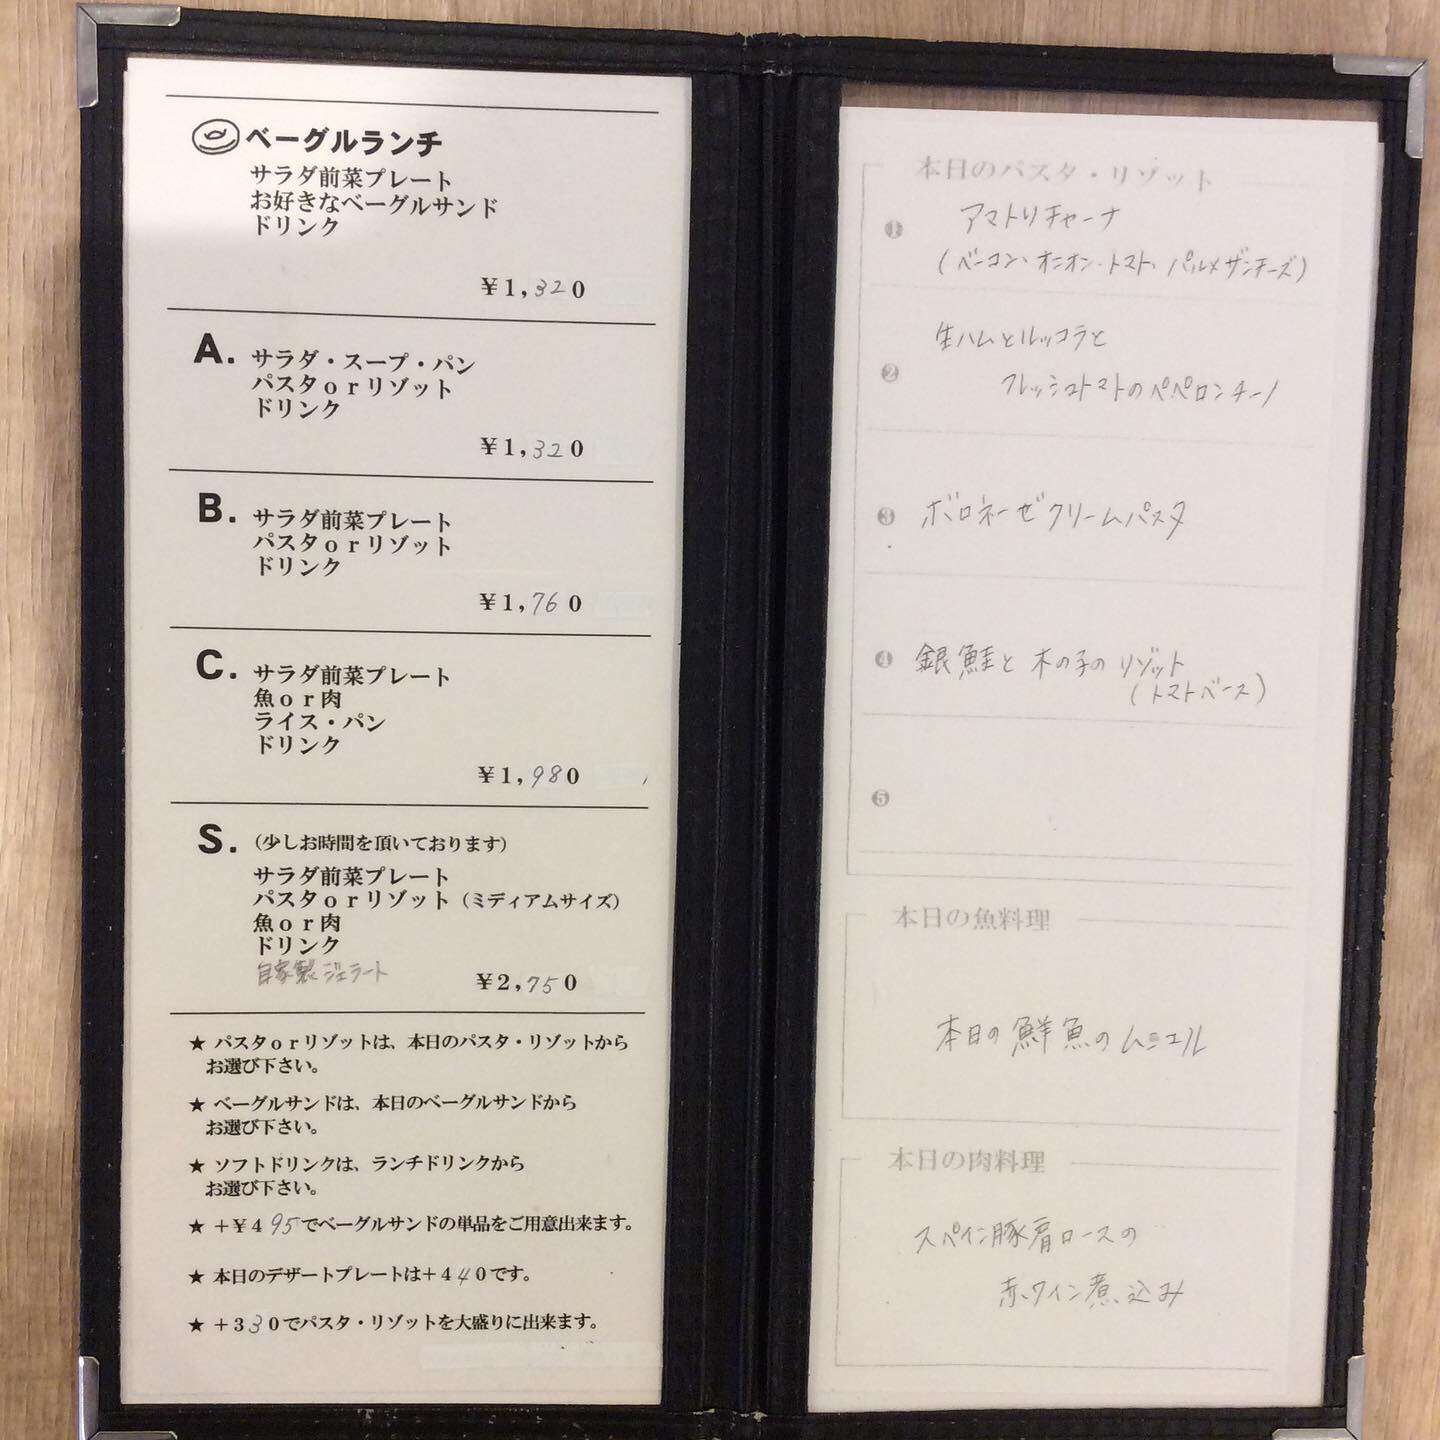 ベーグルランチ
サラダ前菜プレート
お好きなベーグルサンド
ドリンク
¥1,320
A. サラダ・スープ・パン
パスタorリゾット
ドリンク
¥1,320
B. サラダ前菜プレート
パスタorリゾット
ドリンク
¥1,760
C. サラダ前菜プレート
魚or肉
ライス・パン
ドリンク
¥1,980
S. (少しお時間を頂いております)
サラダ前菜プレート
パスタorリゾット(ミディアムサイズ)
魚or肉
ドリンク
自家製ジェラート
¥2,750
★ パスタorリゾットは、本日のパスタ・リゾットから
お選び下さい。
★ ベーグルサンドは、本日のベーグルサンドから
お選び下さい。
★ ソフトドリンクは、ランチドリンクから
お選び下さい。
★ +¥495でベーグルサンドの単品をご用意出来ます。
★ 本日のデザートプレートは+440です。
★ +330でパスタ・リゾットを大盛りに出来ます。
本日のパスタ・リゾット
❶ アマトリチャーナ
(ベーコン、オニオン・トマト、パルメザンチーズ)
❷ 生ハムとルッコラと
フレッシュトマトのペペロンチーノ
❸ ボロネーゼクリームパスタ
❹ 銀鮭と木の子のリゾット
(トマトベース)
❺
本日の魚料理
本日の鮮魚のムニエル
本日の肉料理
スペイン豚肩ロースの
赤ワイン煮込み